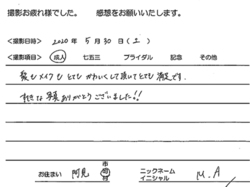 撮影お疲れ様でした。 感想をお願いいたします。
<撮影日時> 2020年 5月 30日 (土)
<撮影項目> 成人 七五三 ブライダル 記念 その他
髪もメイクもとてもかわいくして頂いてとても満足です。
すてきな写真ありがとうございました!!
お住まい 阿見 市 町 村 ニックネーム イニシャル M.A